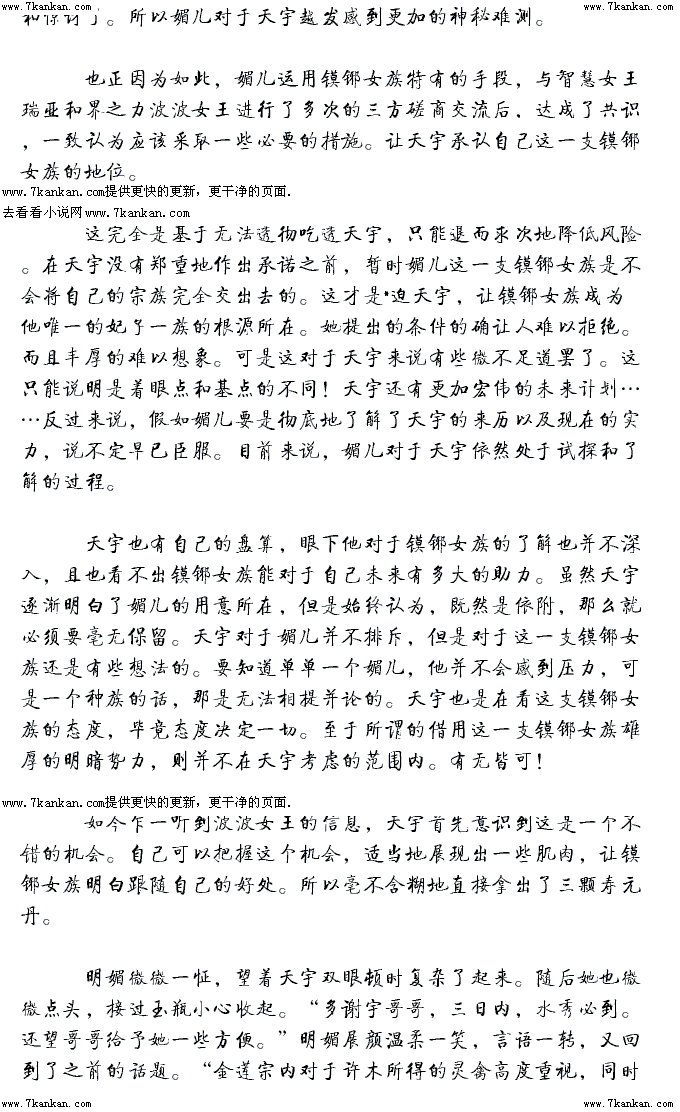 www.7kankan.com www.7kankan.com
。所以媚儿对于天宇越发感到更加的神秘难测。
也正因为如此，媚儿运用镆铘女族特有的手段，与智慧女王
瑞亚和界之力波波女王进行了多次的三方磋商交流后，达成了共识
，一致认为应该采取一些必要的措施。让天宇承认自己这一支镆铘
女族的地位。
www.7kankan.com提供更快的更新，更干净的页面.
去看看小说网www.7kankan.com
这完全是基于无法透彻吃透天宇，只能退而求次地降低风险
。在天宇没有郑重地作出承诺之前，暂时媚儿这一支镆铘女族是不
会将自己的宗族完全交出去的。这才是*迫天宇，让镆铘女族成为
他唯一的妃子一族的根源所在。她提出的条件的确让人难以拒绝。
而且丰厚的难以想象。可是这对于天宇来说有些微不足道罢了。这
只能说明是着眼点和基点的不同！天宇还有更加宏伟的未来计划…
…反过来说，假如媚儿要是彻底地了解了天宇的来历以及现在的实
力，说不定早已臣服。目前来说，媚儿对于天宇依然处于试探和了
解的过程。
天宇也有自己的盘算，眼下他对于镆铘女族的了解也并不深
入，且也看不出镆铘女族能对于自己未来有多大的助力。虽然天宇
逐渐明白了媚儿的用意所在，但是始终认为，既然是依附，那么就
必须要毫无保留。天宇对于媚儿并不排斥，但是对于这一支镆铘女
族还是有些想法的。要知道单单一个媚儿，他并不会感到压力，可
是一个种族的话，那是无法相提并论的。天宇也是在看这支镆铘女
族的态度，毕竟态度决定一切。至于所谓的借用这一支镆铘女族雄
厚的明暗势力，则并不在天宇考虑的范围内。有无皆可！
www.7kankan.com提供更快的更新，更干净的页面.
如今乍一听到波波女王的信息，天宇首先意识到这是一个不
错的机会。自己可以把握这个机会，适当地展现出一些肌肉，让镆
铘女族明白跟随自己的好处。所以毫不含糊地直接拿出了三颗寿元
丹。
明媚微微一怔，望着天宇双眼顿时复杂了起来。随后她也微
微点头，接过玉瓶小心收起。“多谢宇哥哥，三日内，水秀必到。
还望哥哥给予她一些方便。”明媚展颜温柔一笑，言语一转，又回
到了之前的话题。“金莲宗内对于许木所得的灵禽高度重视，同时
www.7kankan.com www.7kankan.com